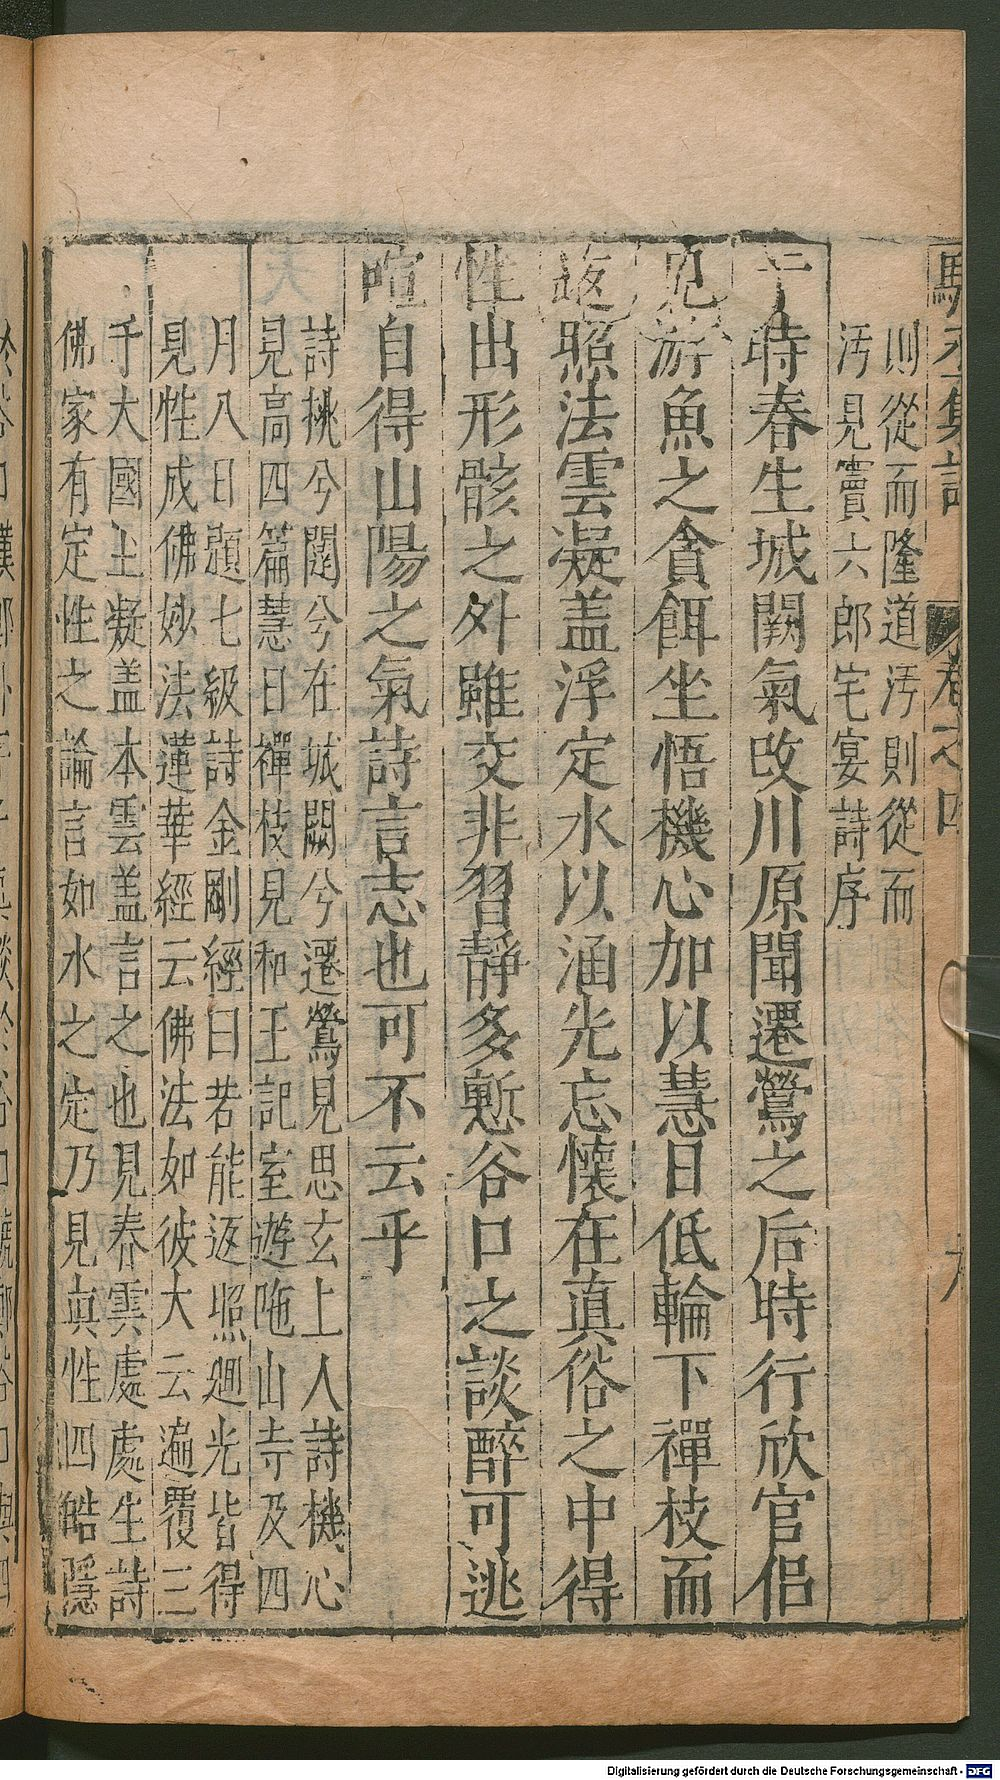 丞集註 卷之四 九
則從而隆道汚則從而
汚見竇六郎宅宴詩序
于時春生城闕氣改川原聞遷鶯之后時行欣官侣
見游魚之貪餌坐悟機心加以慧日低輪下禪枝而
返照法雲凝盖浮定水以涵光忘懷在眞俗之中得
性出形骸之外雖交非習靜多慙谷口之談醉可逃
喧自得山陽之氣詩言志也可不云乎
詩挑兮闥兮在城闕兮遷鶯見思玄上人詩機心
見高四篇慧日禪枝見和王記室遊陁山寺及四
月八日題七級詩金剛經曰若能返照廻光皆得
見性成佛妙法蓮華經云佛法如彼大云遍覆三
千大國上凝盖本雲盖言之也見泰雲處處生詩
佛家有定性之論言如水之定乃見眞性四皓隱
Digitalisierung gefördert durch die Deutsche Forschungsgemeinschaft - DFG